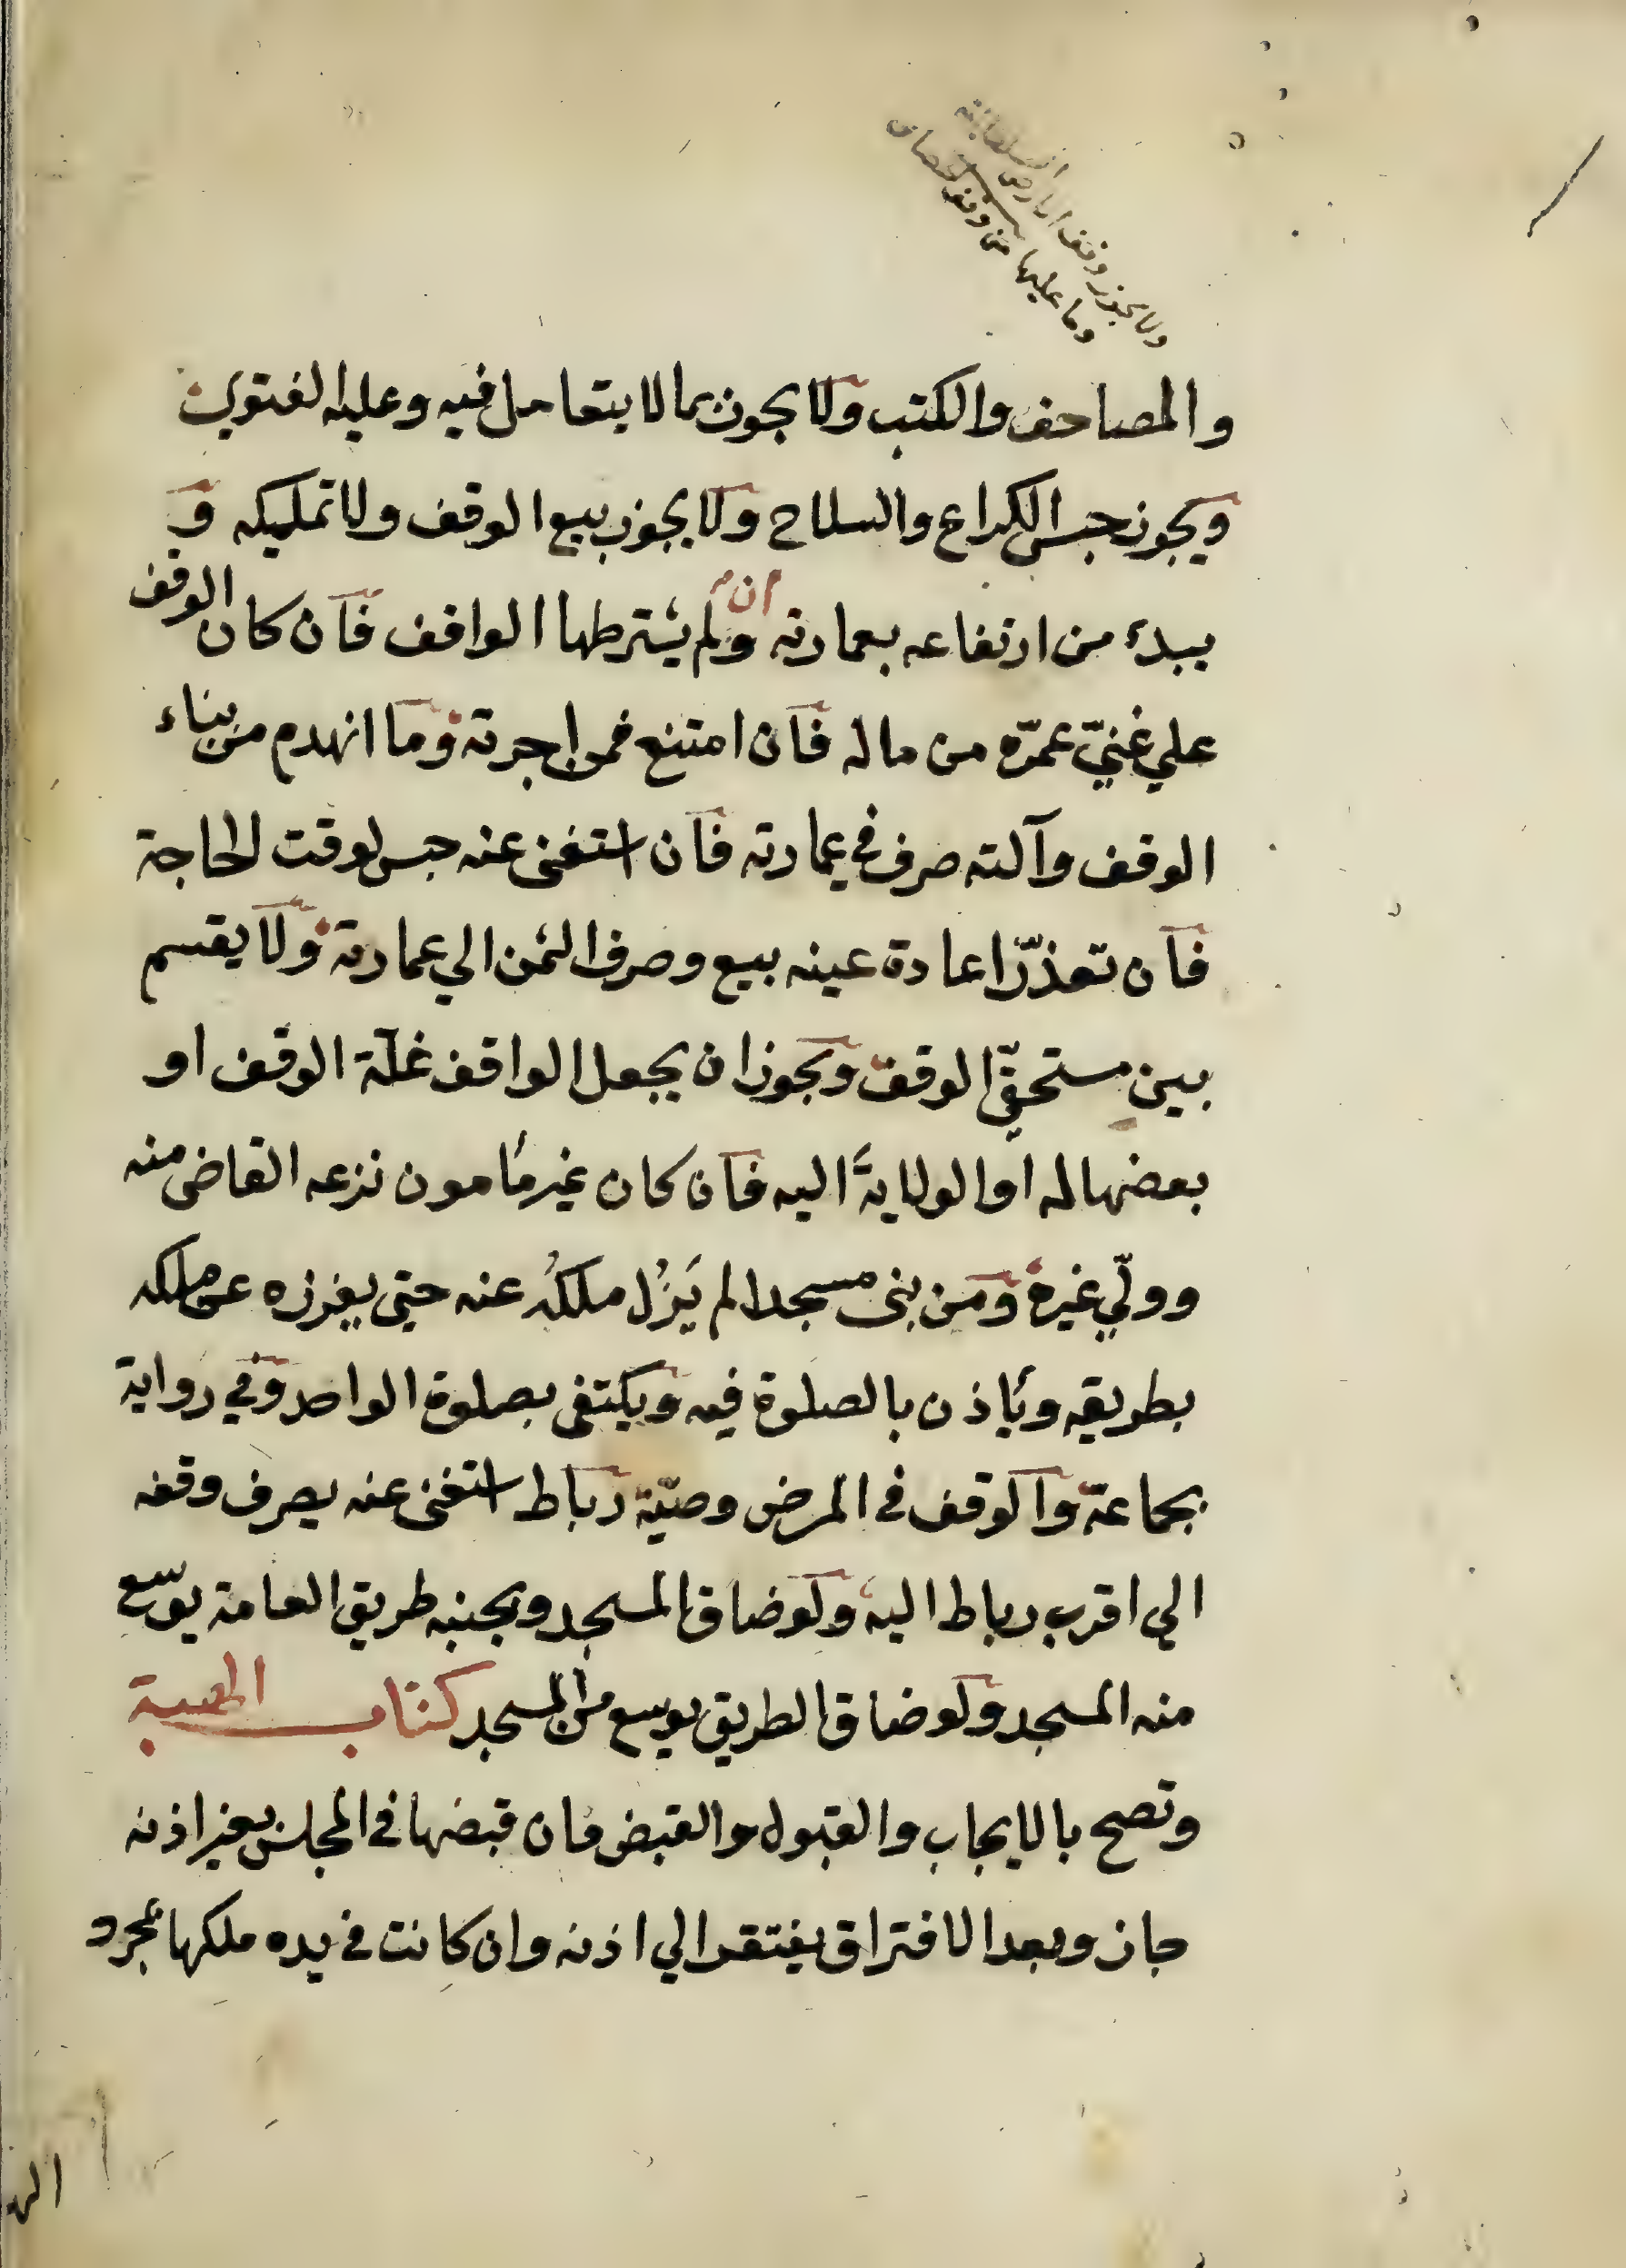 ولا يجوز وقف الاراضى السلطانية
وما عليها من وقف خصاف
والمصاحف والكتب ولا يجوز بما لا يتعامل فيه وعليه الفتوى
ويجوز حبس الكراع والسلاح ولا يجوز بيع الوقف ولا تمليكه و
يبدء من ارتفاعه بعمارته وان لم يشترطها الواقف فان كان الوقف
علي غنيّ عمّره من ماله فان امتنع فمن اجرته وما انهدم من بناء
الوقف وآلته صرف في عمارته فان استغنى عنه حبس لوقت الحاجة
فان تعذّر اعادة عينه بيع وصرف الثمن الي عمارته ولا يقسم
بين مستحقّي الوقف ويجوز ان يجعل الواقف غلّة الوقف او
بعضها له او الولايةَ اليه فان كان غير مأمون نزعه القاضى منه
وولّي غيره ومن بنى مسجدا لم يَزُل ملكُه عنه حتي يفرزه عن ملكه
بطريقه ويأذن بالصلوة فيه ويكتفى بصلوة الواحد وفي رواية
بجماعة والوقف في المرض وصيّة رباط استغنى عنه يصرف وقفه
الي اقرب رباط اليه ولو ضاق المسجد وبجنبه طريق العامة يوسّع
منه المسجد ولو ضاق الطريق يوسع من المسجد كتاب الهبة
وتصح بالايجاب والقبول والقبض فان قبضها في المجلس بغير اذنه
جاز وبعد الافتراق يفتقر الي اذنه وان كانت في يده ملكها بمجرد